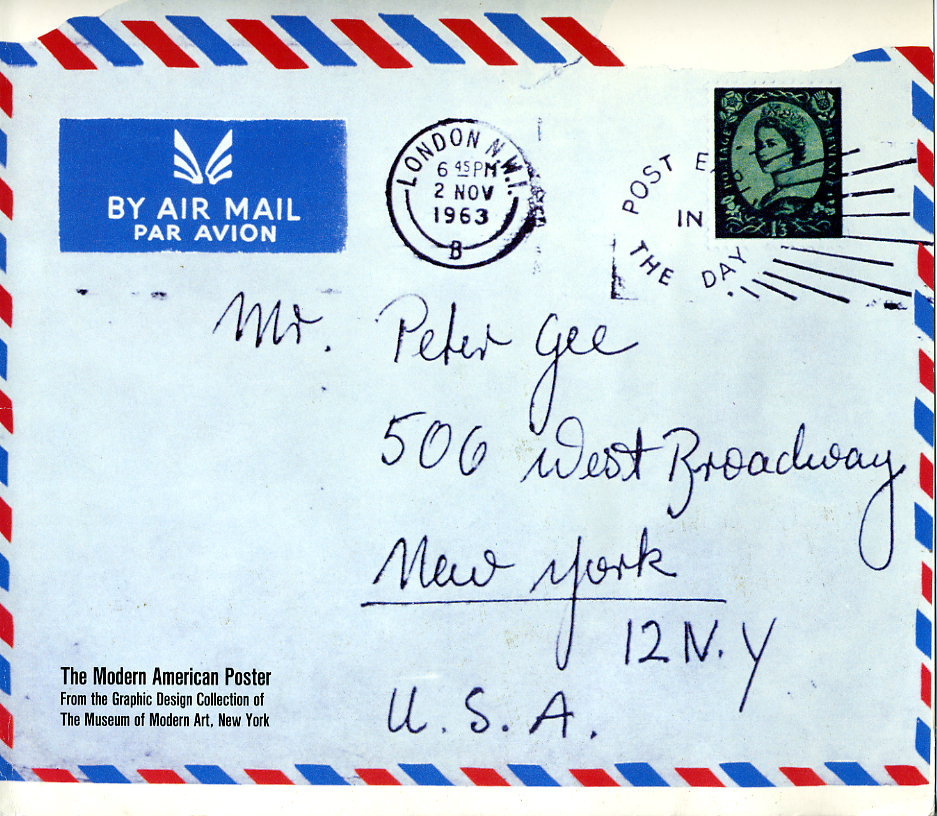 BY AIR MAIL
PAR AVION
LONDON N.W.1.
6 45 PM
2 NOV
1963
B
POST E
IN
THE DAY
POSTAGE REVENUE
1/3
Mr. Peter Gee
506 West Broadway
New York
12 N.Y
U.S.A.
The Modern American Poster
From the Graphic Design Collection of
The Museum of Modern Art, New York